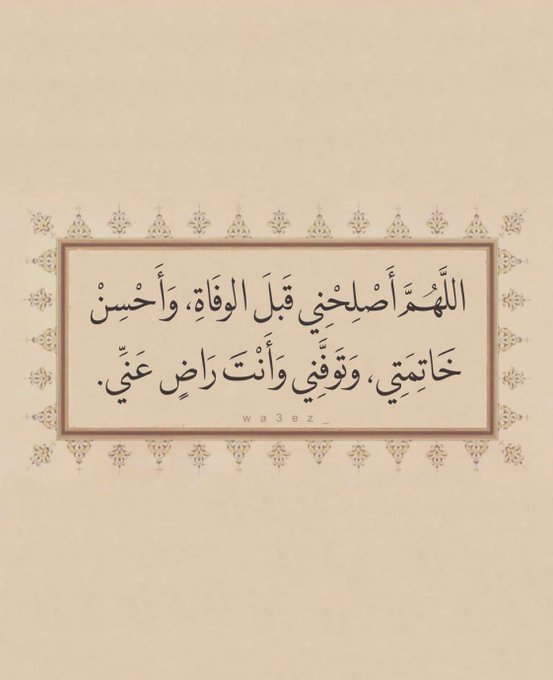 اللَّهُمَّ أَصْلِحْنِي قَبلَ الوفَاةِ، وَأَحْسِنْ
خَاتِمَتِي، وَتَوَفَّنِي وَأَنْتَ رَاضٍ عَنِّي.
wa3ez_